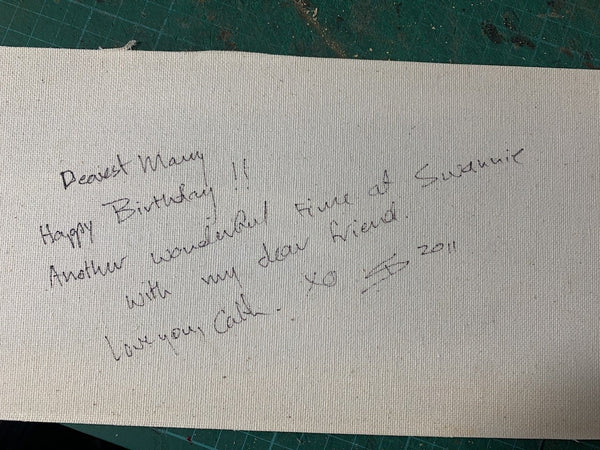 Dearest Mary
Happy Birthday !!
Another wonderful time at Swannie
with my dear friend.
Love you, Cath. xo 2011